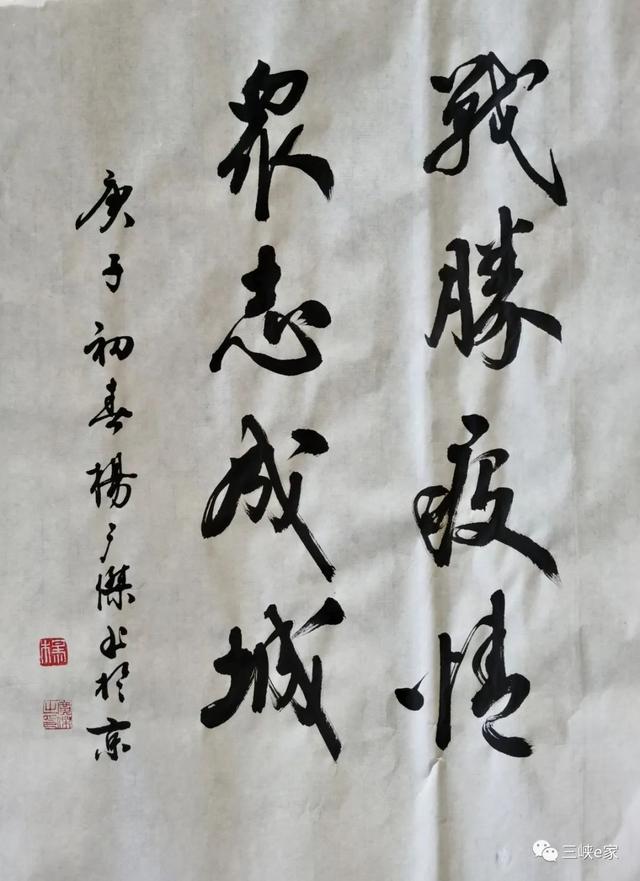 戰勝疫情
眾志成城
庚子初春楊广傑书於京
三峡e家